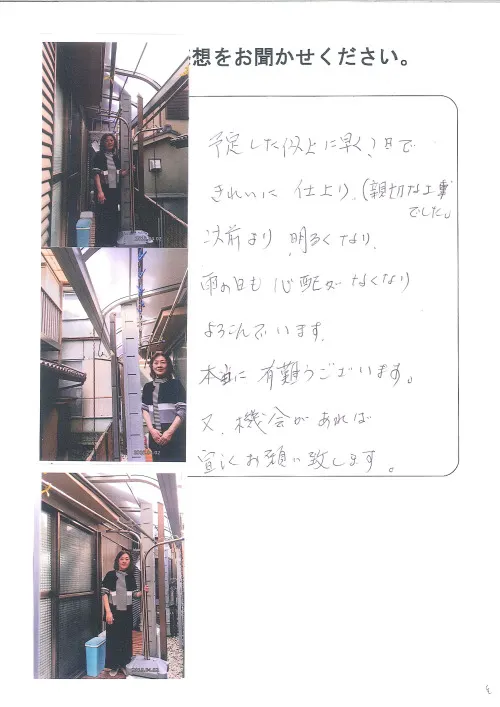 想をお聞かせください。
予定した以上に早く1日で
きれいに仕上り、(親切な工事
でした。
以前より明るくなり、
雨の日も心配がなくなり
よろこんでいます。
本当に有難うございます。
又、機会があれば
宜しくお願い致します。